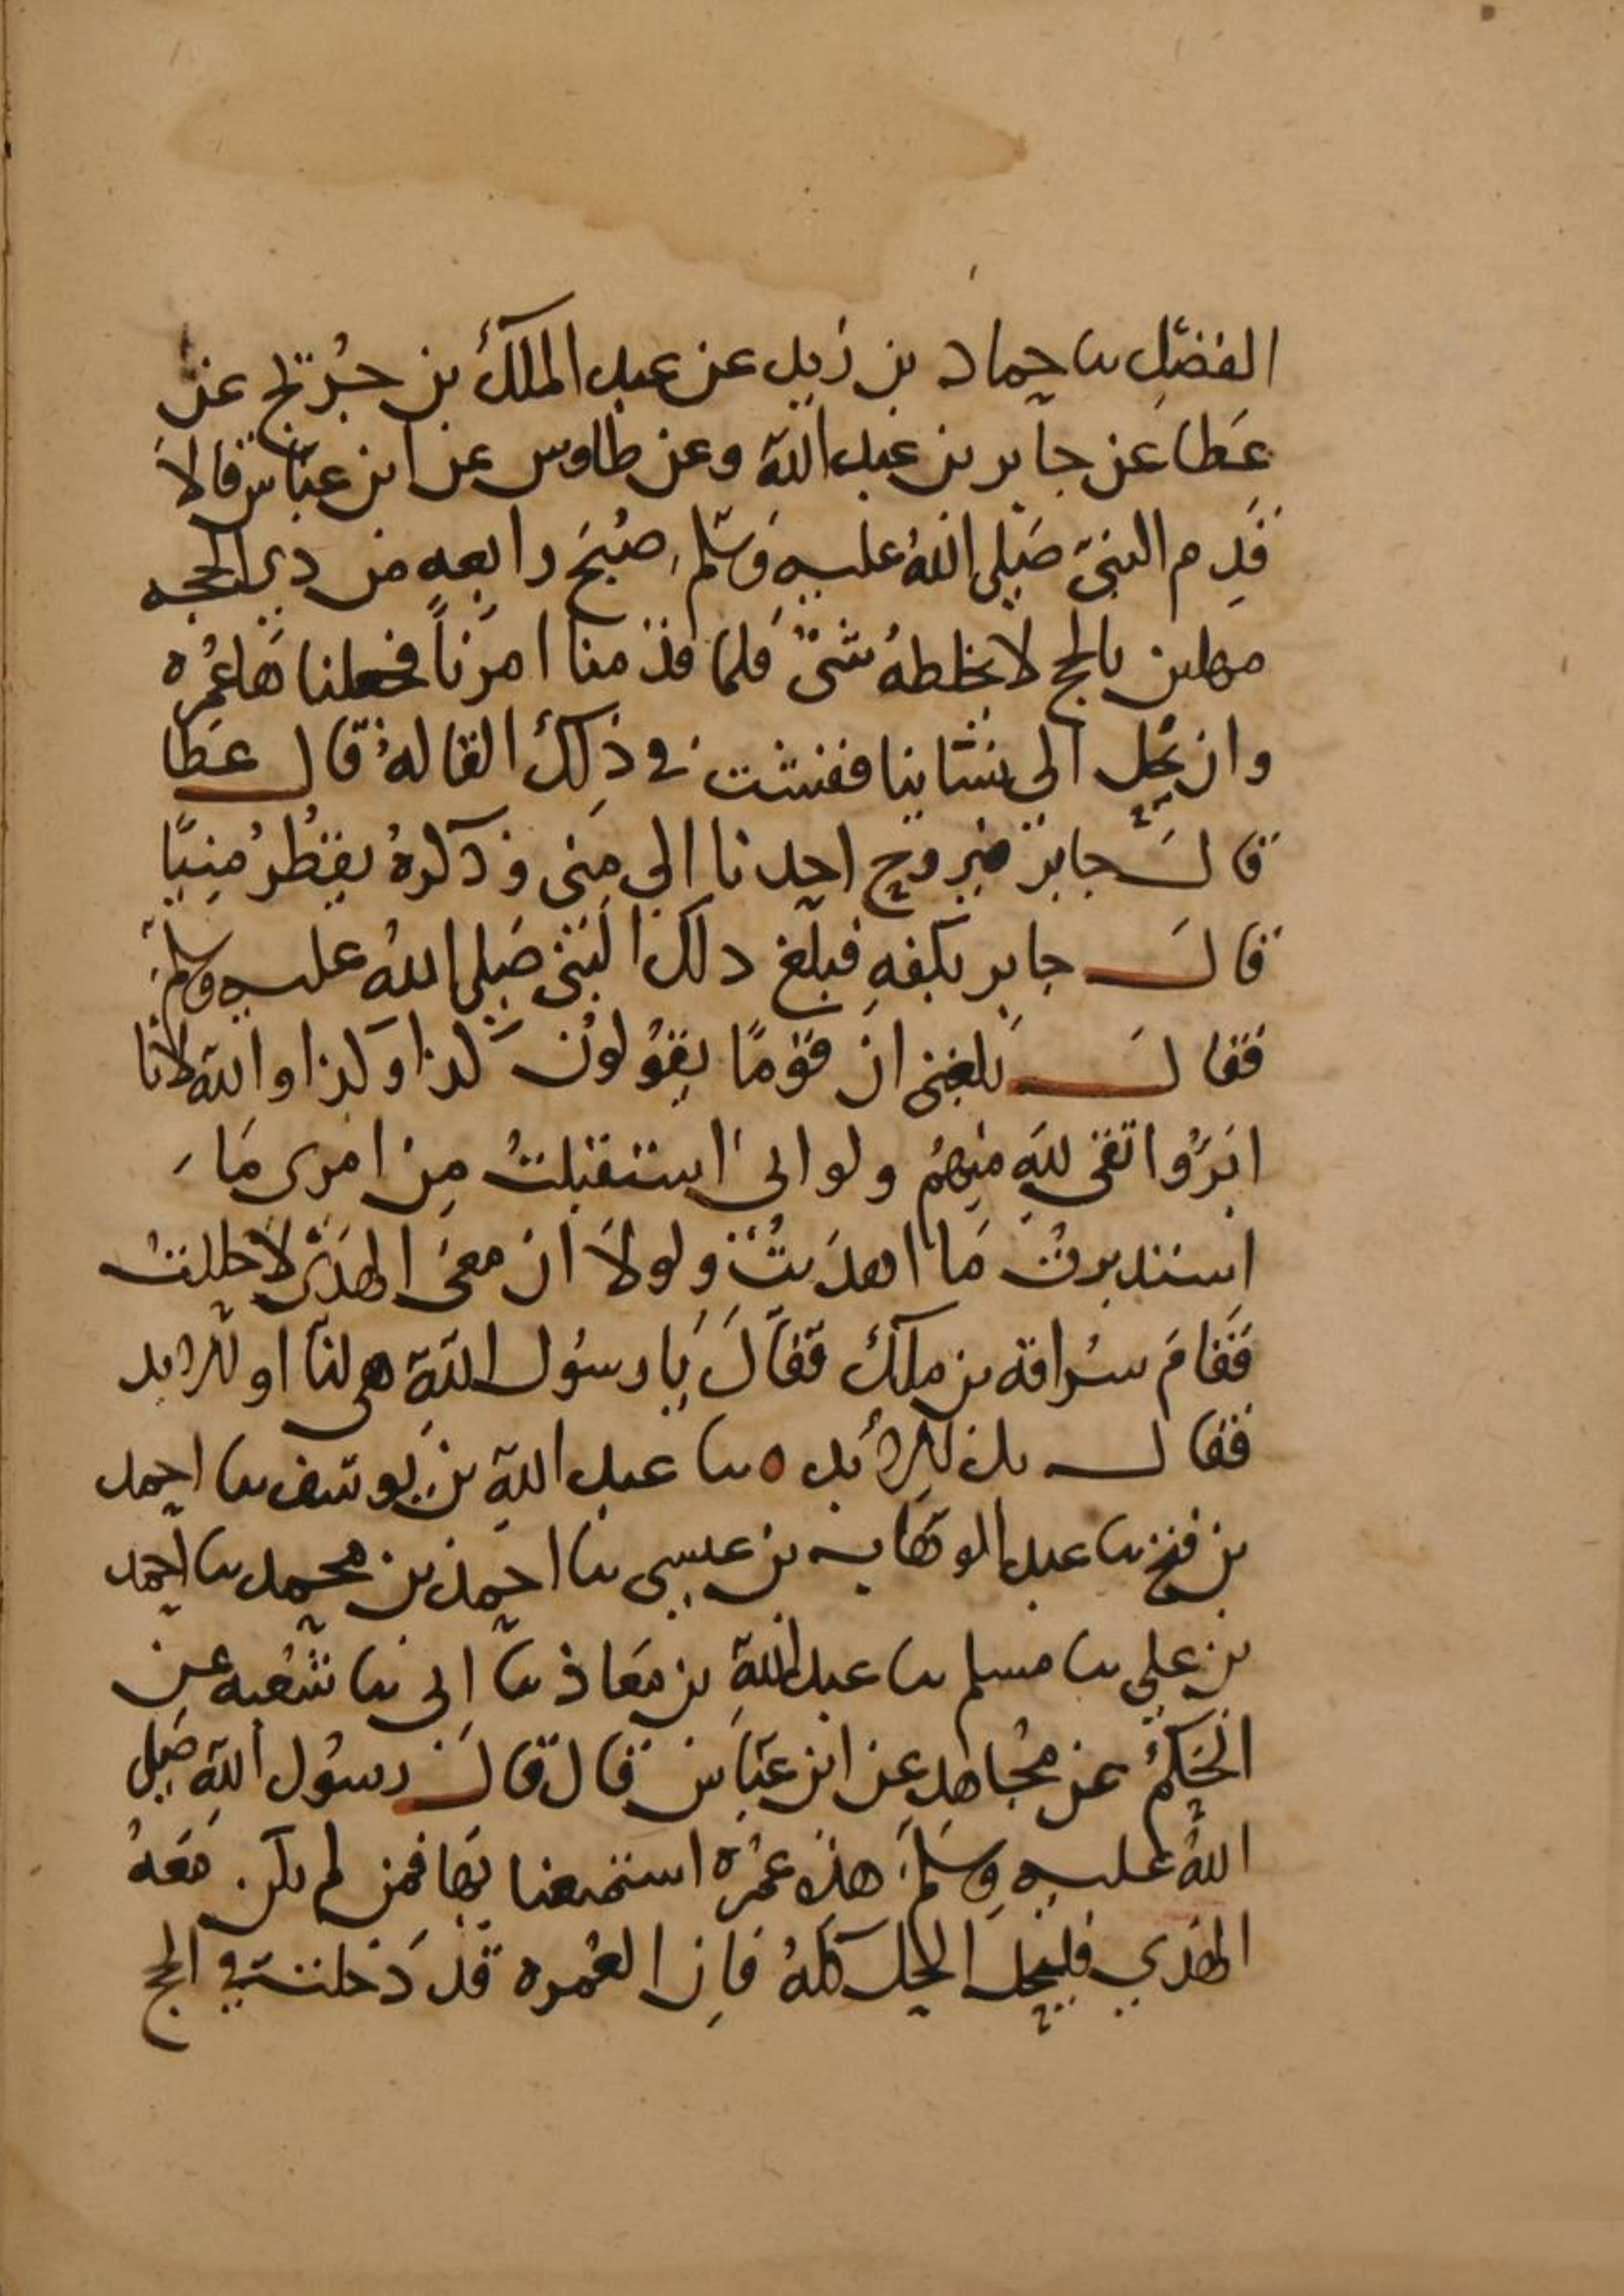 الفضل نا حماد بن زيد عن عبد الملك بن جُريج عن
عَطا عن جابر بن عبد الله وعن طاوس عن ابن عبّاس قالاَ
قَدِم النبيّ صَلى اللهُ عليه وسَلم صُبحَ رابعه من ذي الحجه
مهلين بالحج لا يخلطهُ شيْ فلما قدْمنا امرَناً فجعلنا هَا عُمْره
وان نحِل الي نسَاينا ففشت في ذلك القالهُ قال عَطا
قالَ جابرٌ فيروح احدنا الي مِنى وذَكرهُ يقطُر مُنِيًا
قالَ جابر بكفهِ فبلغ ذلك النبي صَلى اللهُ عليه وسلم
فقالَ بلغني ان قوْمًا يقوُلونَ كذا وكذا والله لانا
ابَرّوُاتقى للهِ مِنهمُ ولو اني استقبلتُ مِن امري مَا
استدبرتُ مَا اهدَيتُ ولولاَ ان معي الهدَيْ لاحللتُ
فَقامَ سُراقة بن ملك فقالَ يَا رسوُل اللهِ هي لنا او للابد
فقال بل للاَبد ٥ نا عبد اللهِ بن يوسف نا احمد
بن فتح نا عبد الوهاب بن عيسى نا احمد بن محمد نا احمد
بن علي نا مسلم نا عبيد اللهِ بن معَاذ نا ابي نا شعْبه عن
الحَكمُ عن مجُاهِدِ عن ابن عبَاس قال قال رسوُل اللهِ صَلى
اللهُ عليه وسَلم هذه عمْرة استمتعنا بهَا فمن لم يكن معَهُ
الهَدي فليحل الحِل كلهُ فاِن العُمره قد دَخلت في الحج